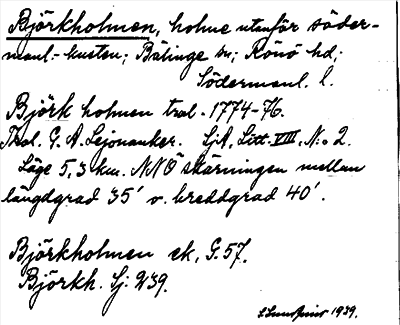 Björkholmen, holme utanför söder-
manl.-kusten; Bälinge sn; Rönö hd;
Södermanl. l.
Björk holmen tral. 1774-76.
Tral. G. A. Lejonanker. SjA, Litt. VIII, N:o 2.
Läge 5,3 km. NNÖ skärningen mellan
längdgrad 35' o. breddgrad 40'.
Björkholmen ek, G. 57.
Björkh. Sj: 939.
1939.